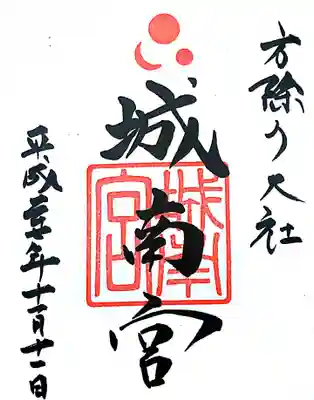 方除の大社
城南宮
城南宮
平成廿七年十一月十一日